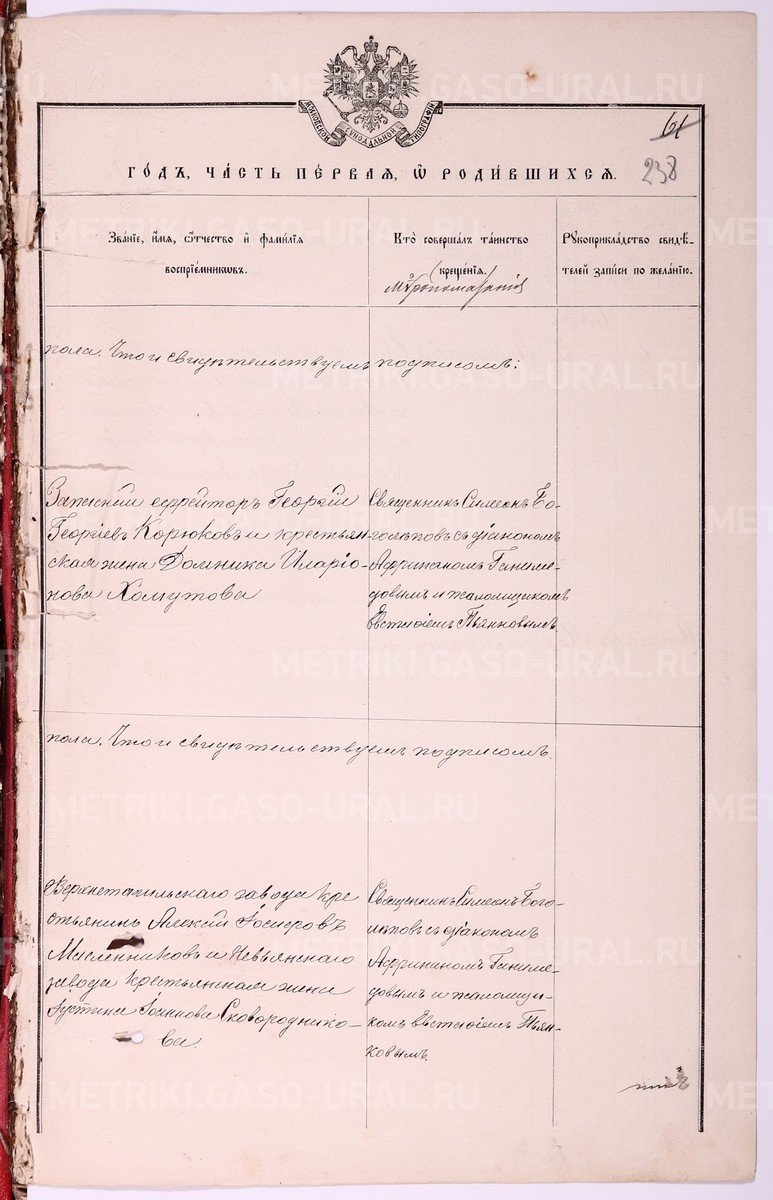 МОСКОВСКОЙ СѴНОДАЛЬНОЙ ТИПОГРАФІИ
61
238
ГО́ДЪ, ЧА́СТЬ ПЕ́РВАЯ, Ѿ РОДИ́ВШИХСЯ.
Зва́нїе, и҆́мѧ, ѻ҆́тчество и҆ фамѝлїѧ
воспрїе́мникѡвъ.
Кто̀ соверша́лъ та́инство
креще́нїѧ.
Мѵропомазанія
Рꙋкоприкла́дство свидѣ́-
телей за́писи по жела́нїю.
пола. Что и свидѣтельствуемъ подписомъ:
Запасный ефрейторъ Георгій
Георгіевъ Корюковъ и крестьян-
ская жена Домника Иларіо-
нова Хомутова
Священникъ Симеонъ Бо-
голѣповъ съ діакономъ
Африканомъ Ганиме-
довымъ и псаломщикомъ
Евстаѳіемъ Пьянковымъ
пола. Что и свидѣтельствуемъ подписомъ.
Верхнетагильскаго завода кре
стьянинъ Алексій
Масленниковъ и Невьянскаго
завода крестьянская жена
Іустина Іоаннова Сковороднико-
ва.
Священникъ Симеонъ Бого-
лѣповъ съ діакономъ
Африканомъ Ганиме-
довымъ и псаломщи-
комъ Евстаѳіемъ Пьян-
ковымъ.
METRIKI.GASO-URAL.RU